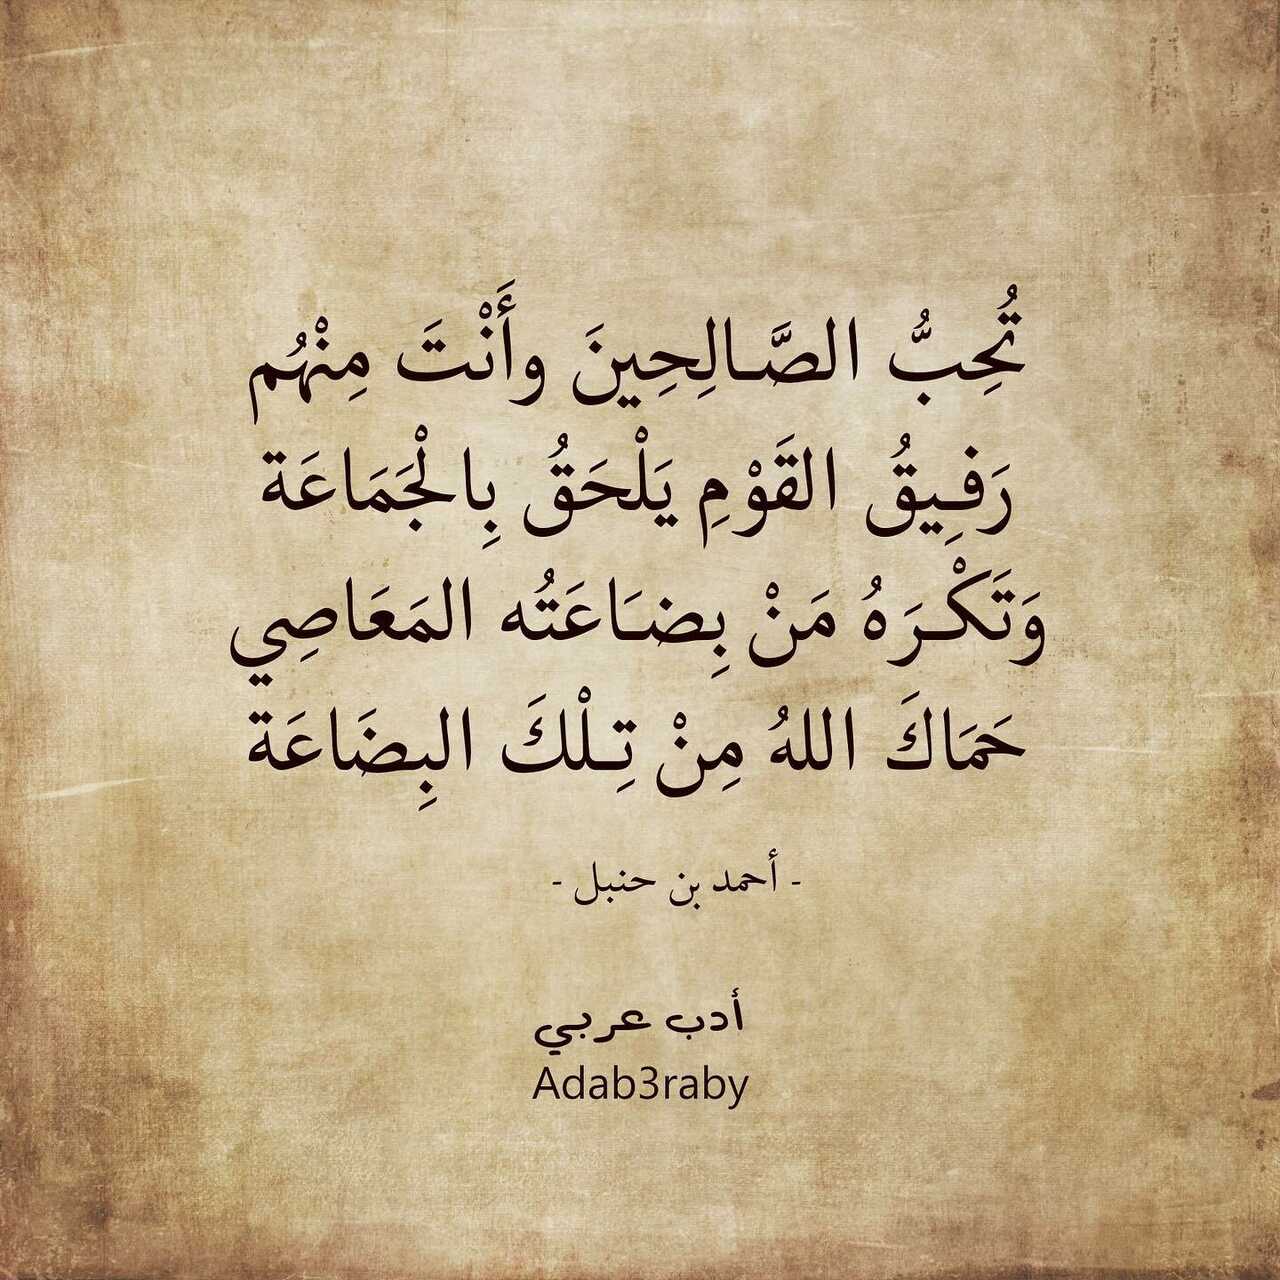 تُحِبُّ الصَّالِحِينَ وأَنْتَ مِنْهُم
رَفِيقُ القَوْمِ يَلْحَقُ بِالْجَمَاعَة
وَتَكْرَهُ مَنْ بِضَاعَتُه المَعَاصِي
حَمَاكَ اللهُ مِنْ تِلْكَ البِضَاعَة
- أحمد بن حنبل -
أدب عربي
Adab3raby